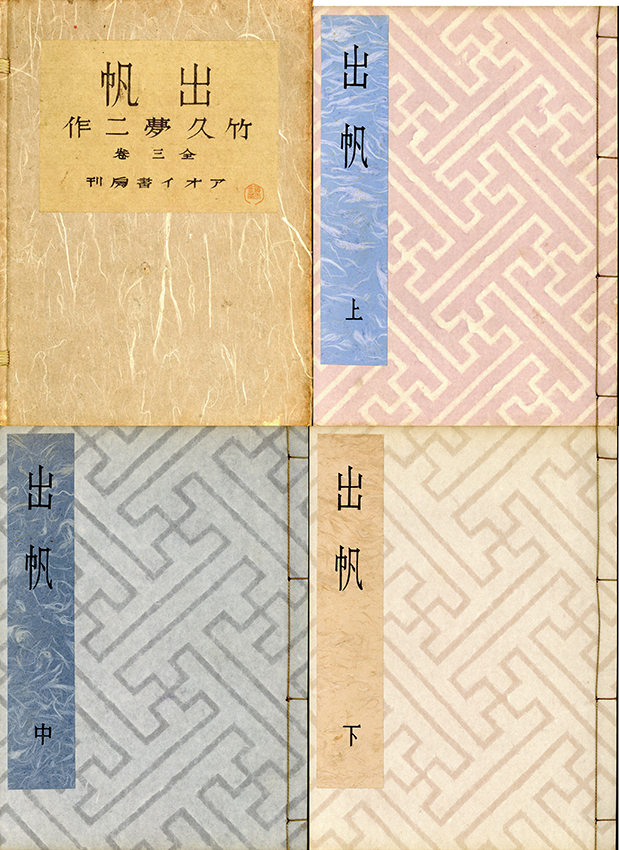 出帆
竹久夢二作
全三卷
アオイ書房刊
出帆
上
出帆
中
出帆
下